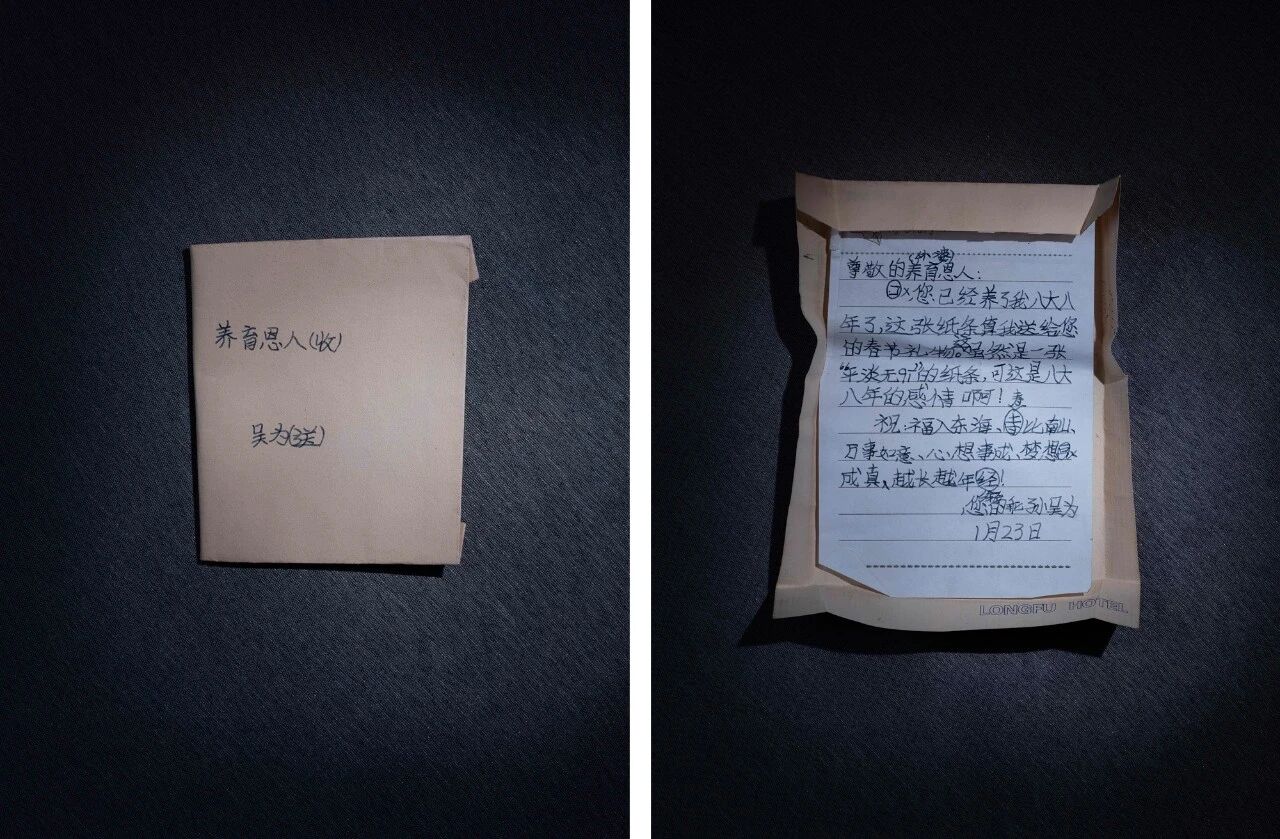 养育恩人(收)
吴为(送)
(外婆)
尊敬的养育恩人:
您已经养了我八大八
年了,这张纸条算我送给您
的春节礼物。虽然是一张
的纸条,可这是八大
八年的感情啊!
祝:福入东海、寿比南山、
万事如意、心想事成、梦想
成真、越长越年轻!
您的孙子吴为
1月23日
LONGFU HOTEL